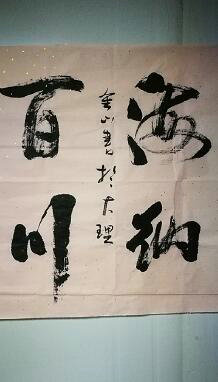 海纳
百川
金山书於大理